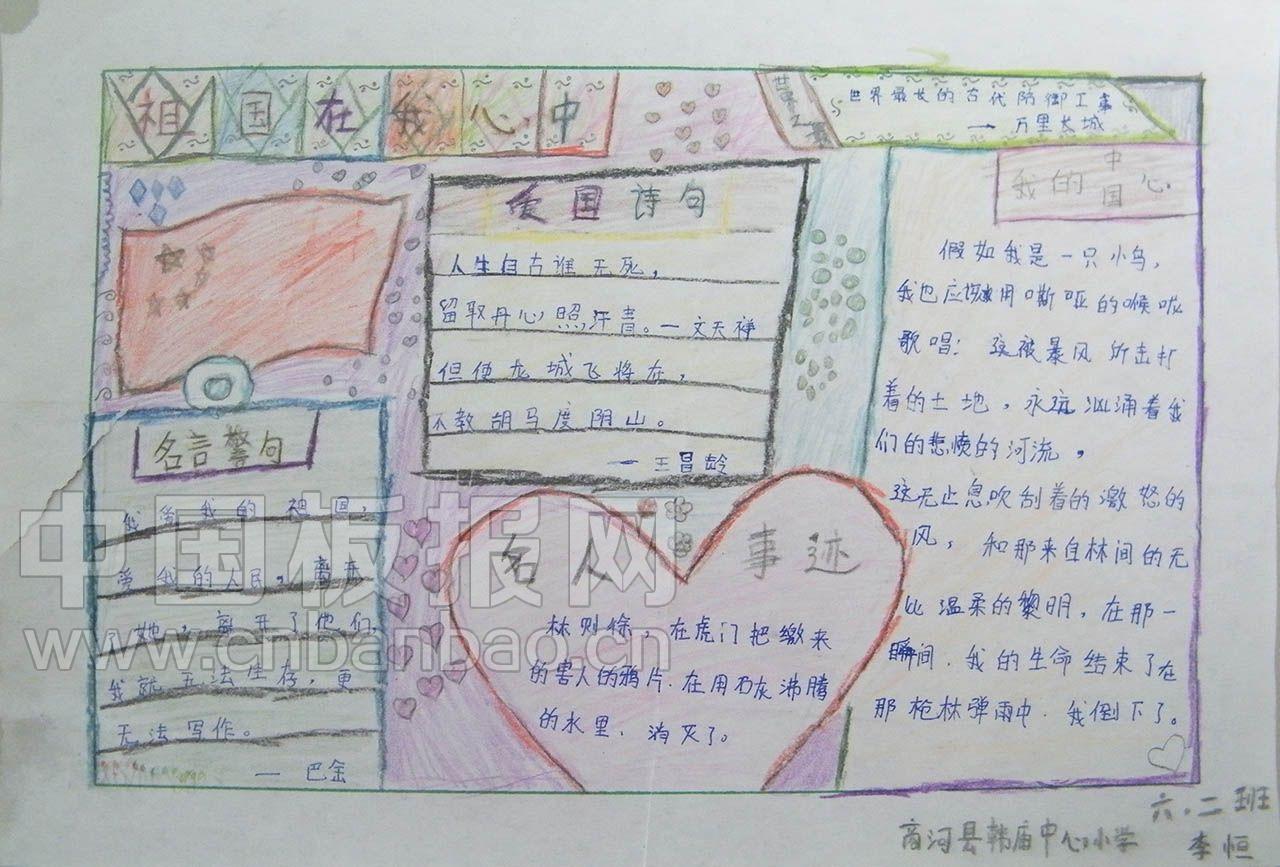 祖国在我心中
世界之最
世界最长的古代防御工事
— 万里长城
爱国诗句
人生自古谁无死，
留取丹心照汗青。—文天祥
但使龙城飞将在，
不教胡马度阴山。
—王昌龄
名言警句
我爱我的祖国，
爱我的人民，离开
她，离开了他们，
我就无法生存，更
无法写作。
— 巴金
名人事迹
林则徐，在虎门把缴来
的害人的鸦片.在用石灰沸腾
的水里、消灭了。
我的中国心
假如我是一只小鸟，
我也应该用嘶哑的喉咙
歌唱：这被暴风所击打
着的土地，永远汹涌着我
们的悲愤的河流，
这无止息吹刮着的激怒的
风，和那来自林间的无
比温柔的黎明，在那一
瞬间.我的生命结束了在
那枪林弹雨中.我倒下了。
六.二班
商河县韩庙中心小学 李恒
中国板报网
www.cnbanbao.cn